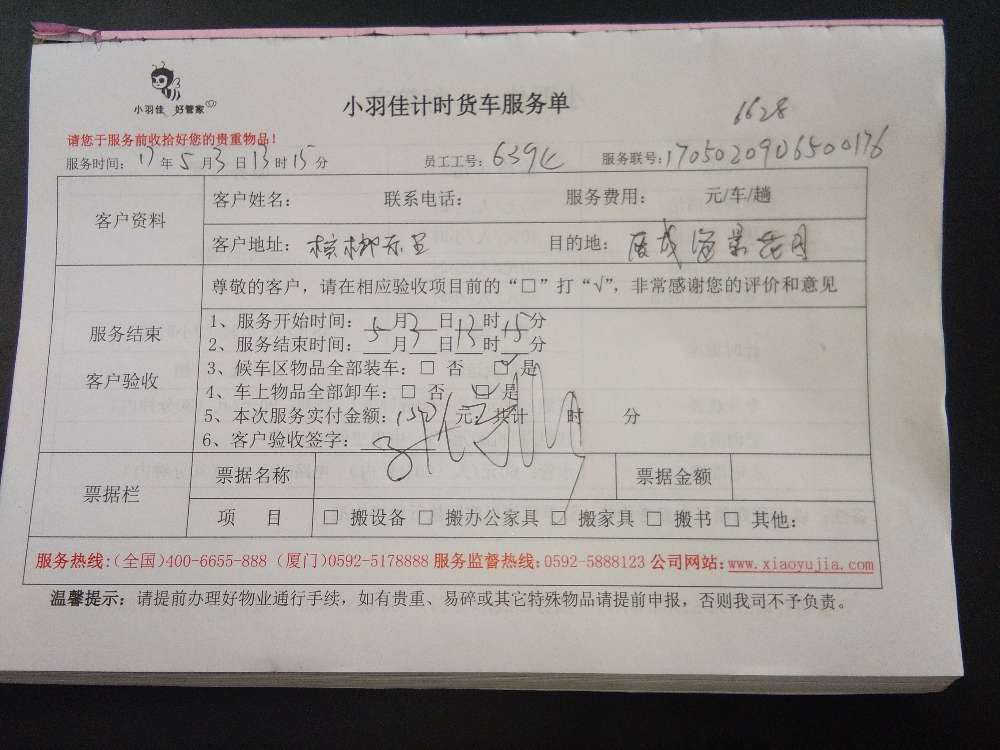 小羽佳 好管家
小羽佳计时货车服务单
6628
请您于服务前收拾好您的贵重物品！
服务时间：17年5月3日13时15分 员工工号：639 服务联号：1705020906500176
客户资料
客户姓名： 联系电话： 服务费用： 元/车/趟
客户地址：槟榔东里 目的地：海景花园
服务结束
客户验收
尊敬的客户，请在相应验收项目前的“□”打“√”，非常感谢您的评价和意见
1、服务开始时间：5月3日13时15分
2、服务结束时间：月 日 时 分
3、候车区物品全部装车：□ 否 ☑ 是
4、车上物品全部卸车：□ 否 ☑ 是
5、本次服务实付金额：150元；共计 时 分
6、客户验收签字：
票据栏
票据名称 票据金额
项 目 □ 搬设备 □ 搬办公家具 ☑ 搬家具 □ 搬书 □ 其他：
服务热线：（全国）400-6655-888（厦门）0592-5178888 服务监督热线：0592-5888123 公司网站：www.xiaoyujia.com
温馨提示：请提前办理好物业通行手续，如有贵重、易碎或其它特殊物品请提前申报，否则我司不予负责。